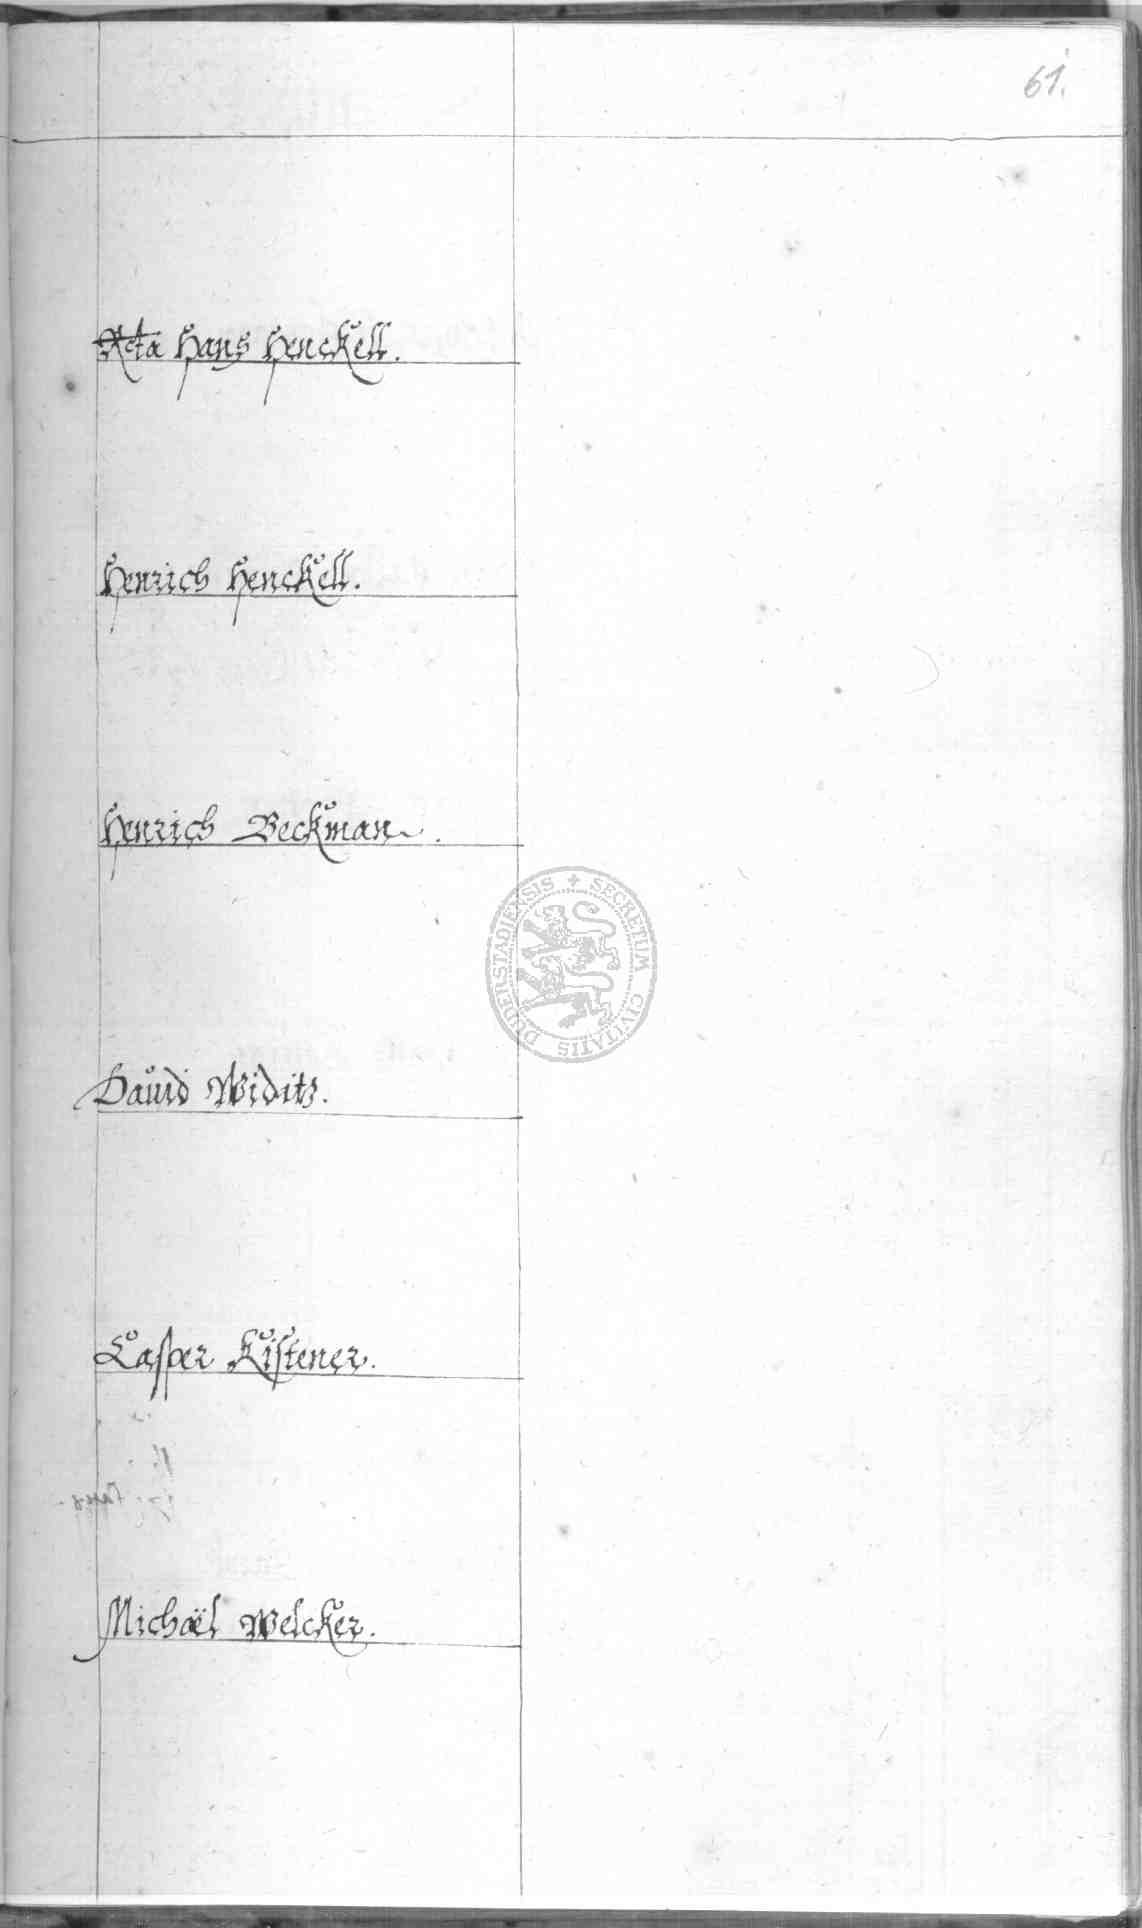 61.
Rcta Hans Henckell.
Henrich Henckell.
Henrich Beckman.
SECRETUM CIVITATIS DUDERSTADIENSIS
Dauid Widitz.
Casper Kistener.
Michaël Welcker.